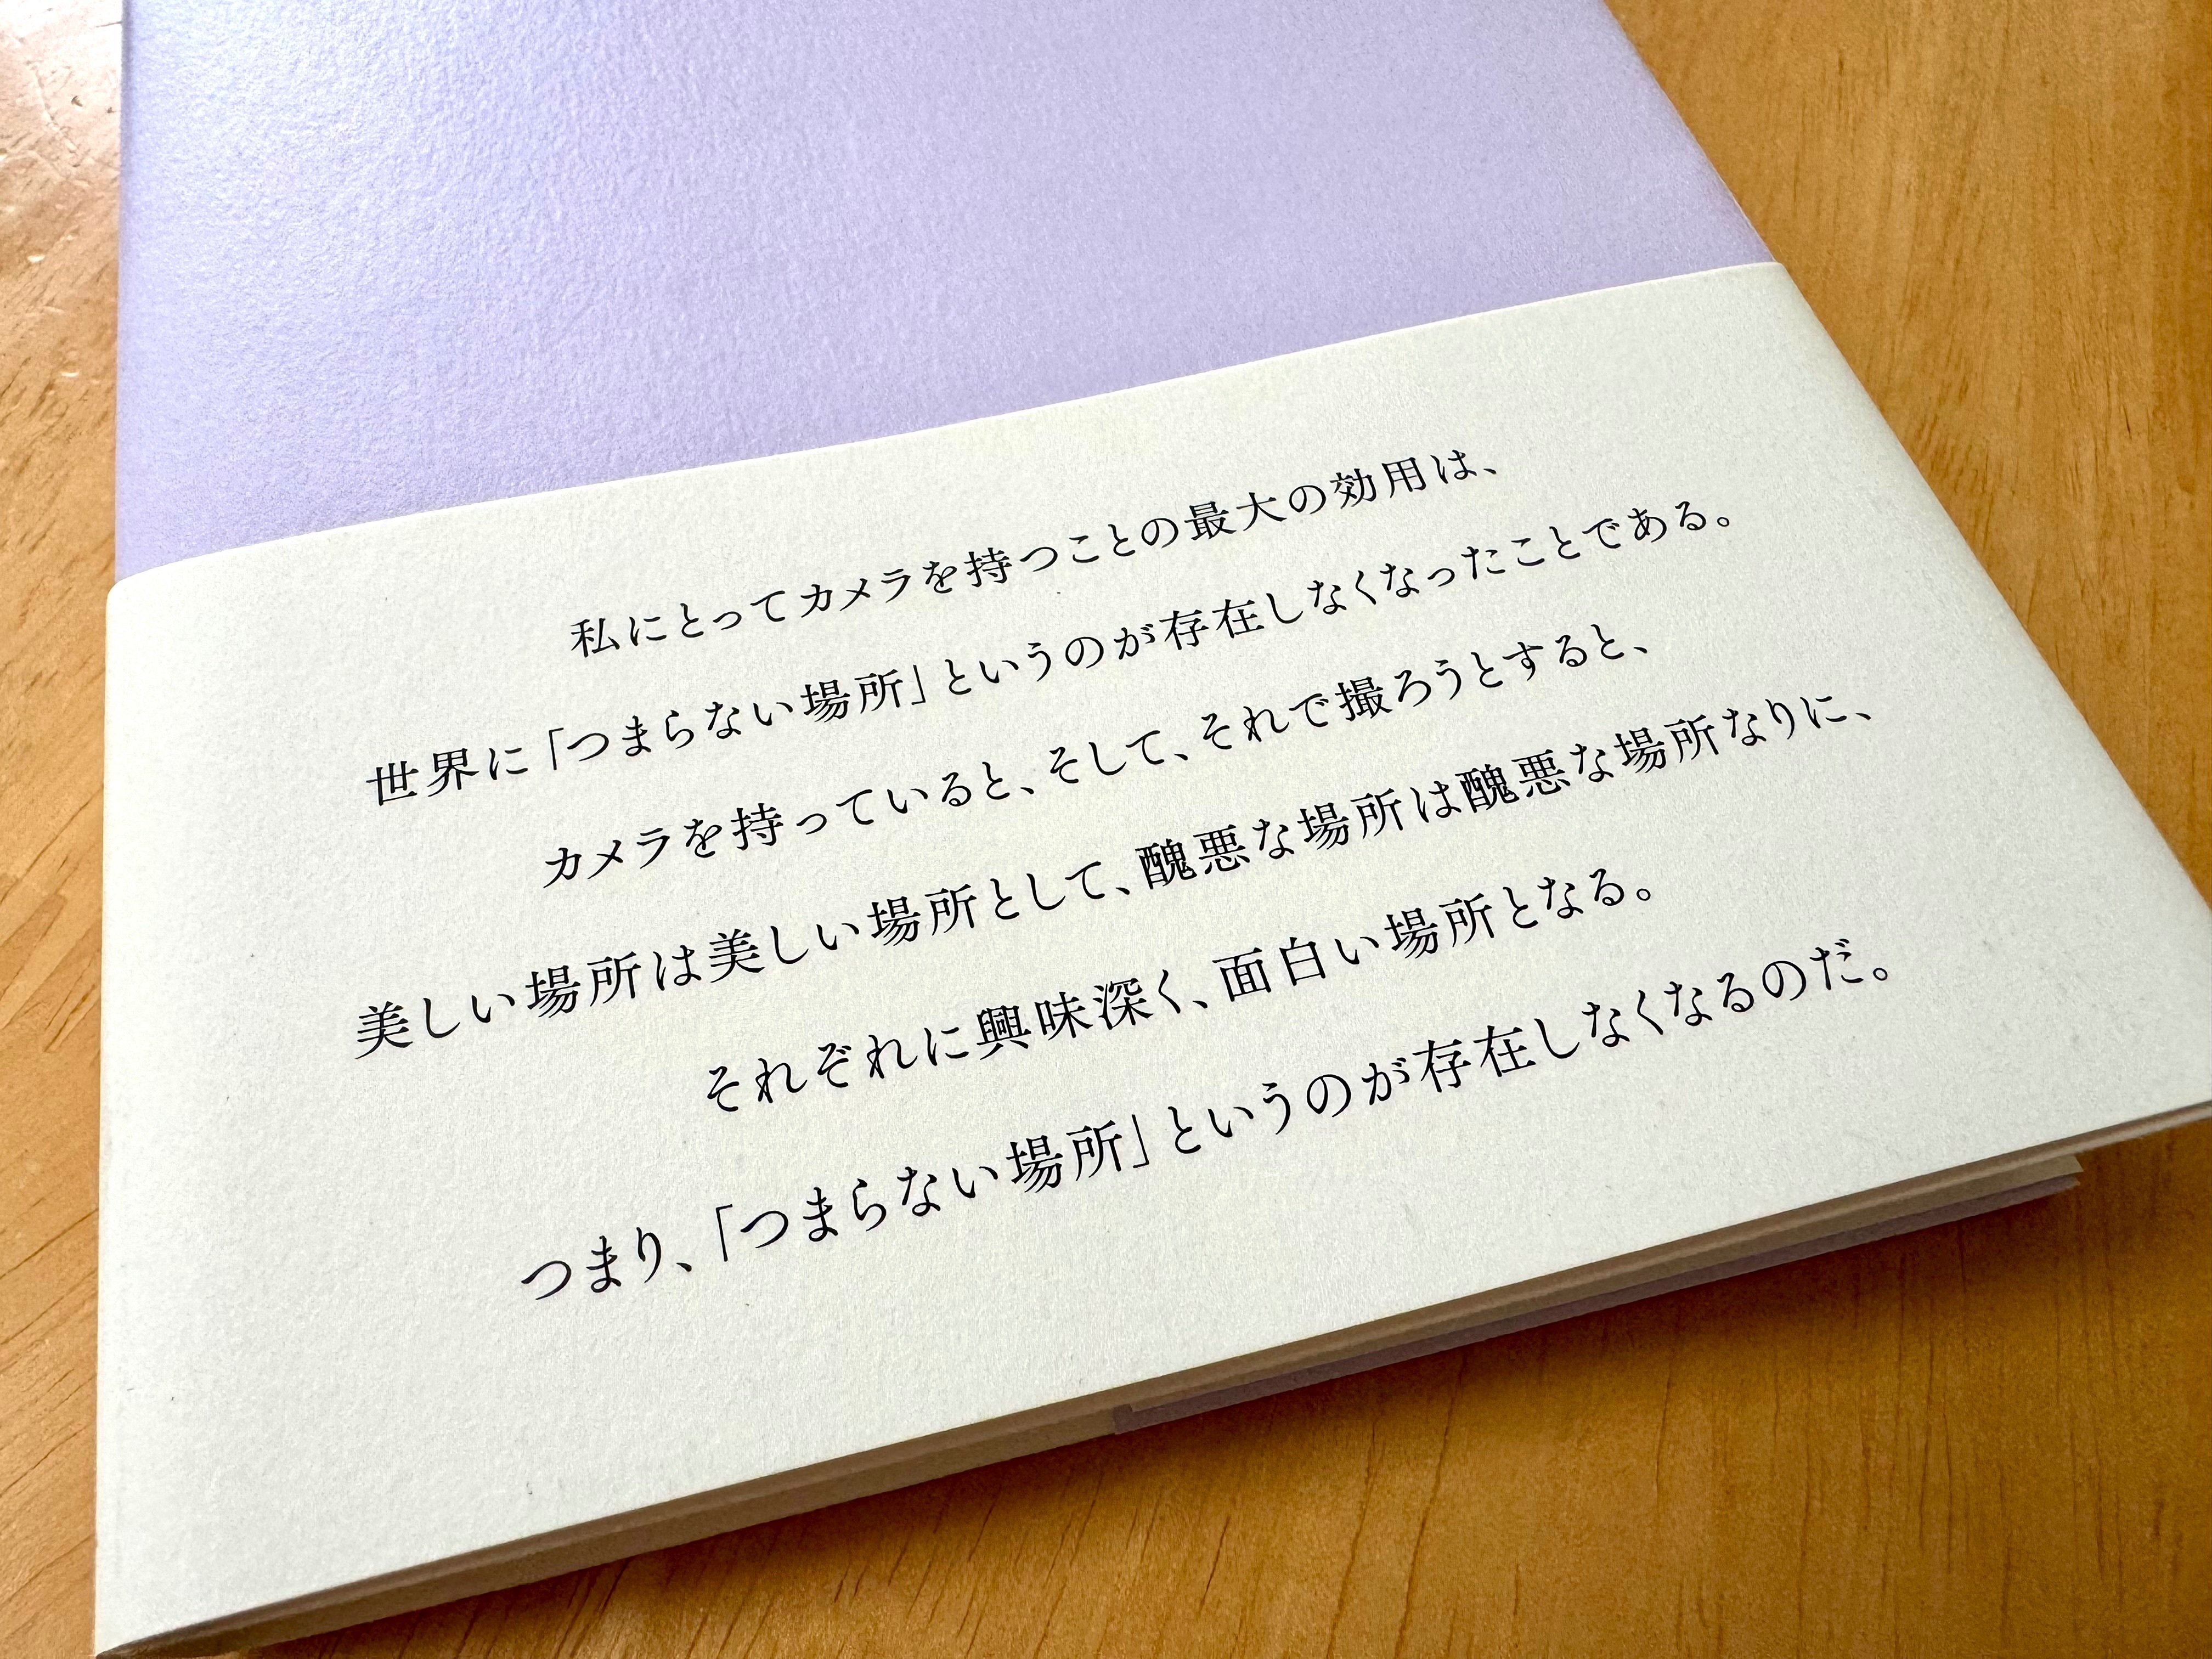 私にとってカメラを持つことの最大の効用は、
世界に「つまらない場所」というのが存在しなくなったことである。
カメラを持っていると、そして、それで撮ろうとすると、
美しい場所は美しい場所として、醜悪な場所は醜悪な場所なりに、
それぞれに興味深く、面白い場所となる。
つまり、「つまらない場所」というのが存在しなくなるのだ。